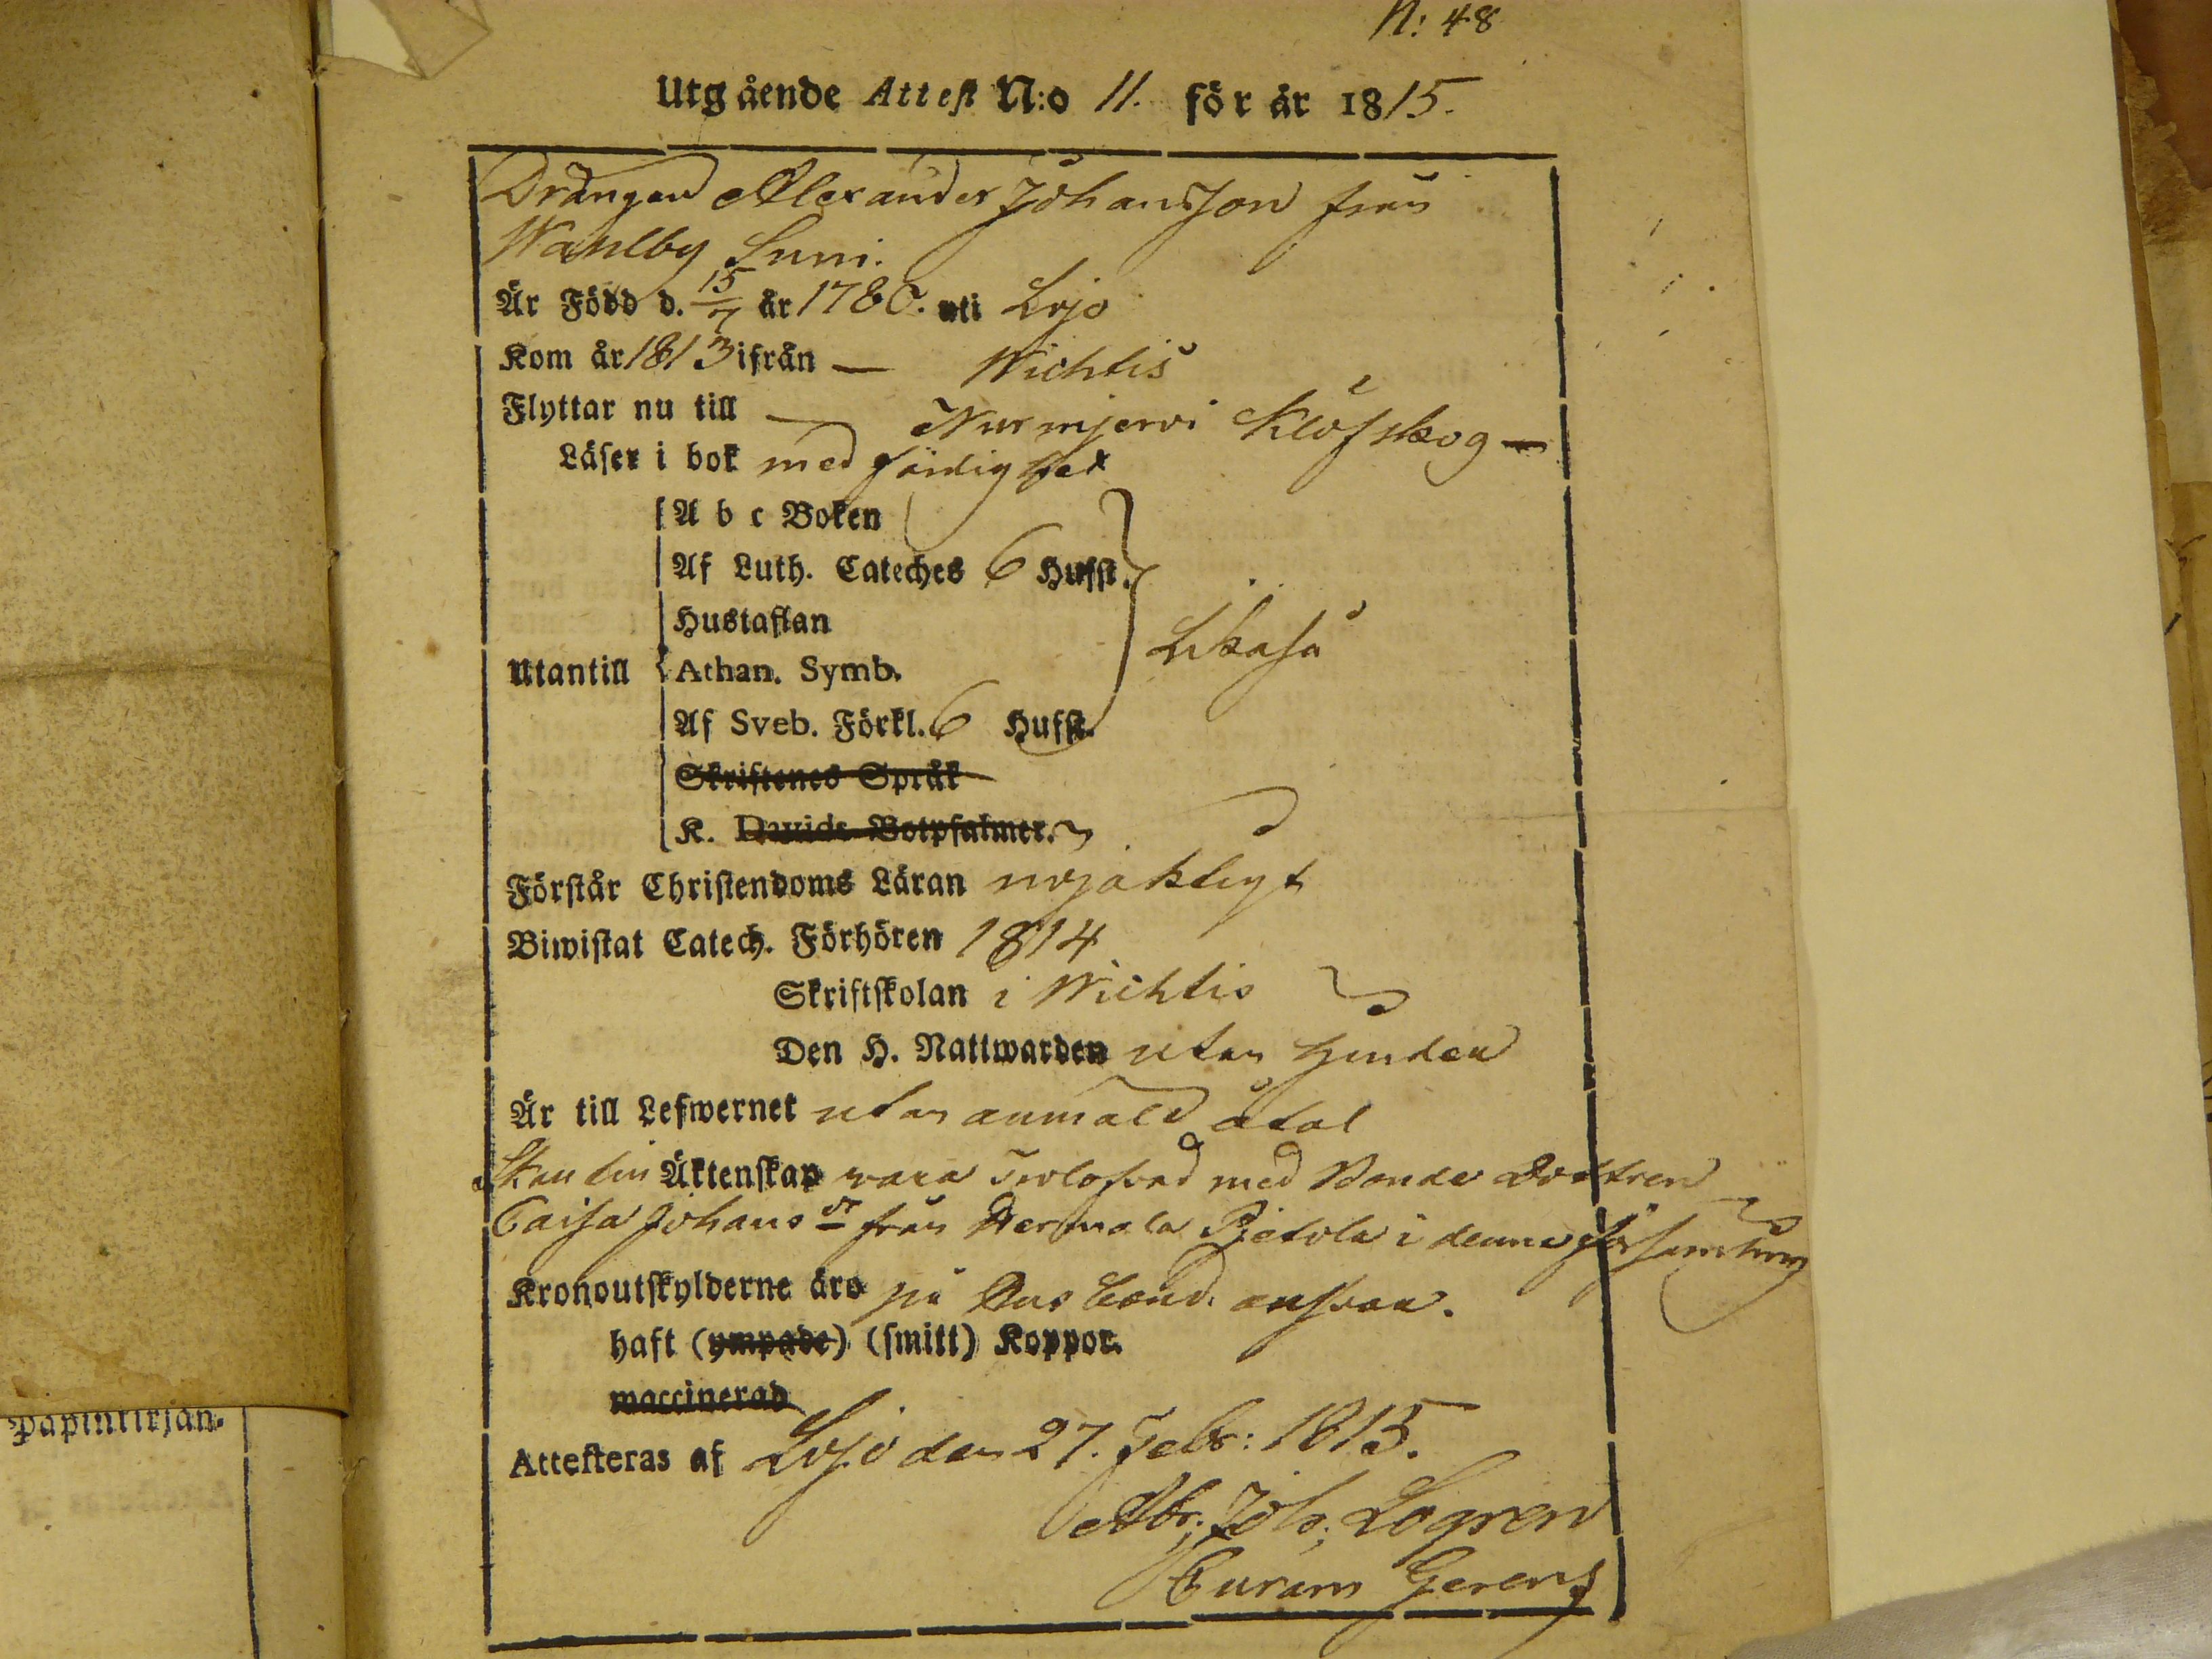 N: 48
Utgående Attest N:o 11. för år 1815.
Drängen Alexander Johansson från
Wahlby Suni.
Är Född d. 15/7 år 1780. uti Lojo
Kom år 1813 ifrån — Wichtis
Flyttar nu till — Nurmjervi Klöfskog —
Läser i bok med färdighet
A b c Boken
Af Luth. Cateches 6 Hufst.
Hustaflan
Likaså
Utantill Athan. Symb.
Af Sveb. Förkl. 6 Hufst.
Skriftenes Språk
K. Davids Botpsalmer.
Förstår Christendoms Läran nöjaktigt
Biwistat Catech. Förhören 1814
Skriftskolan i Wichtis
Den H. Nattwarden utan hinder
Är till Lefwernet utan anmäld åtal
Äktenskap vara trolofvad med Bonde Dottren
Caisa Johans dr från Hermala Pietola i denna församling
Kronoutskylderne äro på Husbond. ansvar.
haft (ympade) (smitt) Koppor.
waccinerad
Attesteras af Lojo den 27. Febr: 1815.
Abr. Joh. Logren
Curam Gerens
Papintirjan-